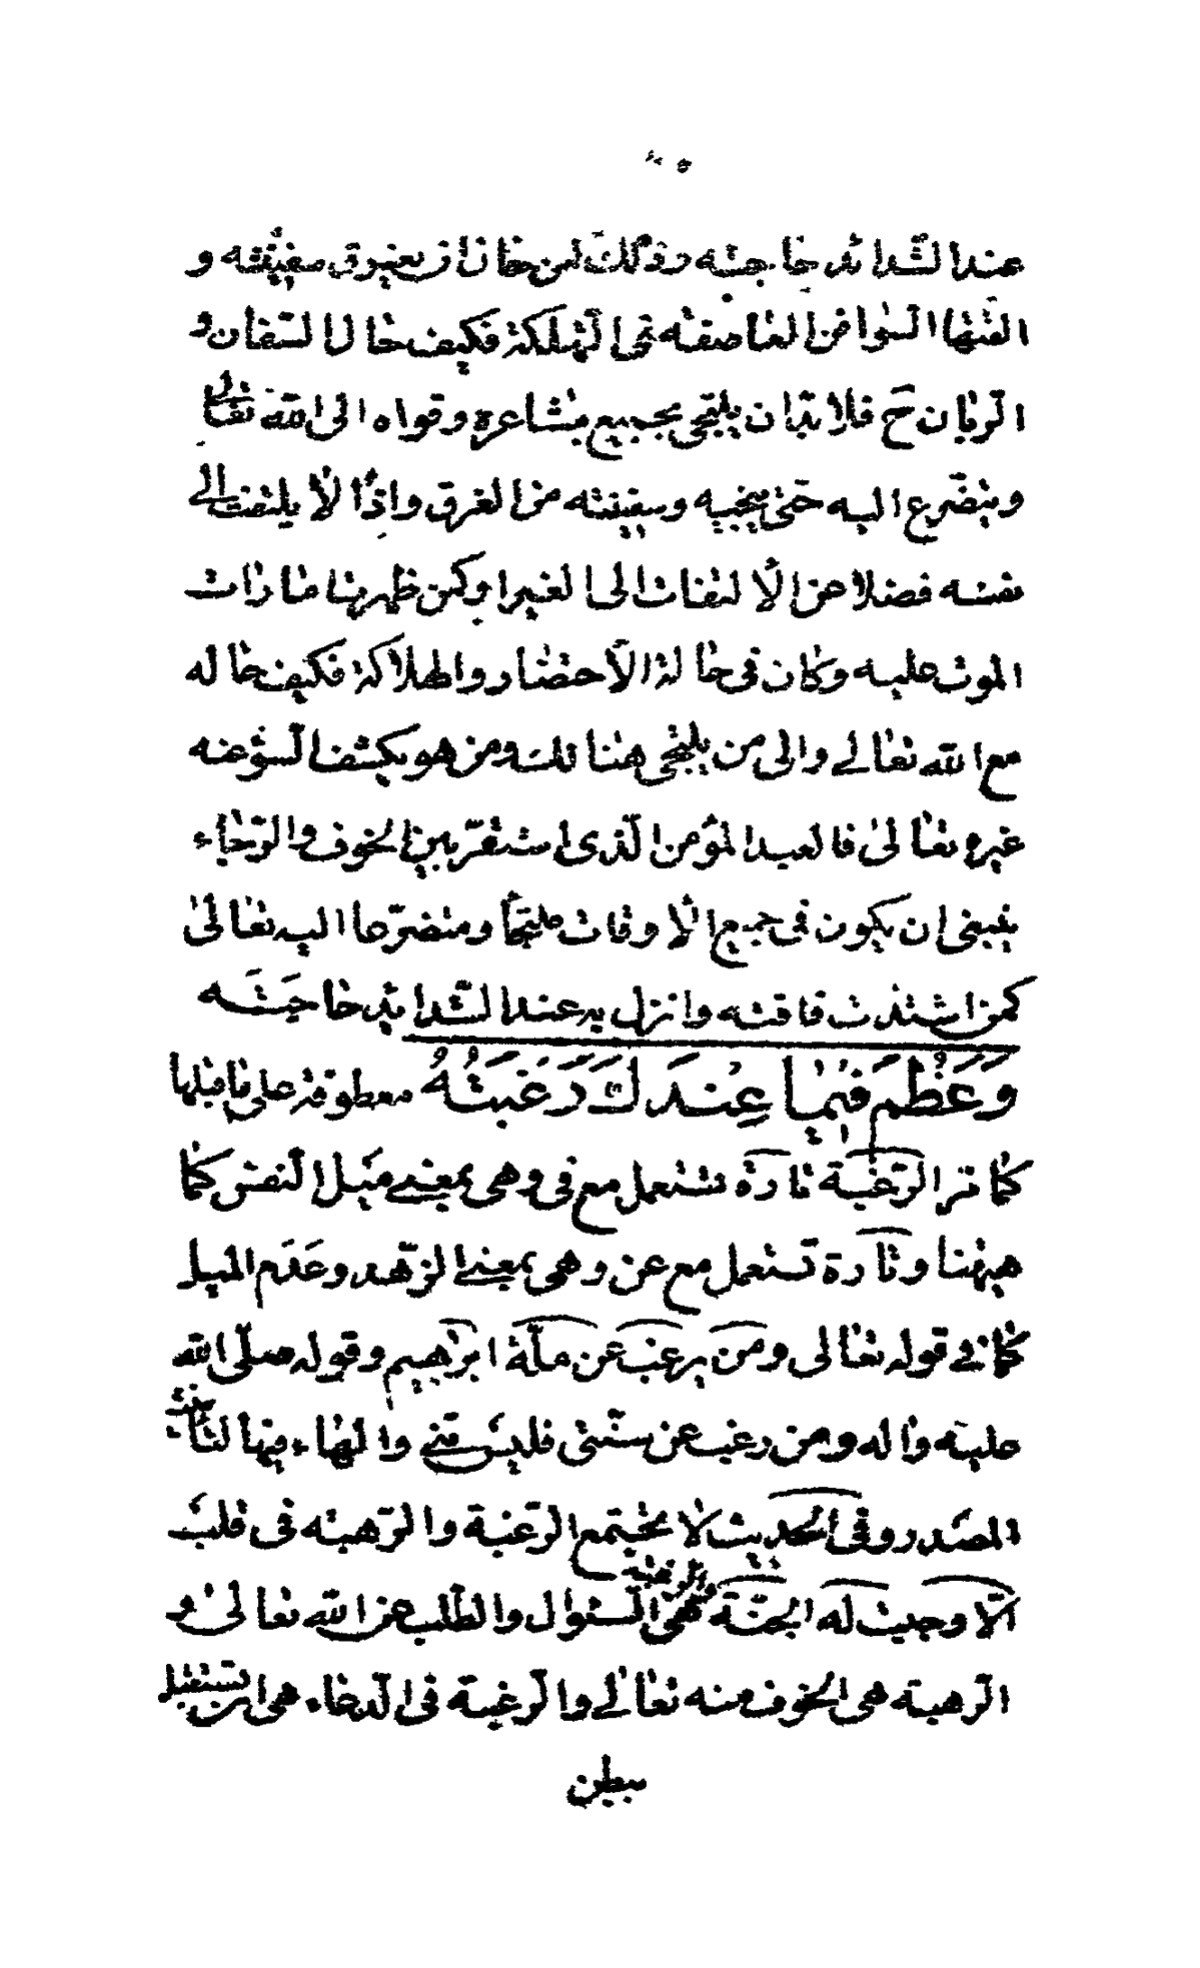 عند الشدائد حاجته وذلك لمن خاف ان يغرق سفينته و
الفتها السوافن العاصفة فى المهلكة فكيف حال السفان و
الربان ح فلا بد ان يلتجى بجميع مشاعره وقواه الى الله تعالى
ويتضرع اليه حتى ينجيه وسفينته من الغرق واذا لا يلتفت الى
نفسه فضلا عن الالتفات الى الغير او كمن ظهر بها مارات
الموت عليه وكان فى حالة الاحضار والهلاكة فكيف حاله
مع الله تعالى والى من يلتجى هنالك ومن هو يكشف السوء عنه
غيره تعالى فالعبد المؤمن الذى استقر بين الخوف والرجاء
ينبغى ان يكون فى جميع الاوقات ملتجأ ومتضرعا اليه تعالى
كمن اشتدت فاقته وانزل به عند الشدائد حاجته
وَعَظُمَ فِيمَا عِنْدَكَ رَغْبَتُهُ معطوفة على ما قبلها
كما تر الرغبة تارة تستعمل مع فى وهى بمعنى ميل النفس كما
هيهنا وتارة تستعمل مع عن وهى بمعنى الزهد وعدم الميل
كما فى قوله تعالى ومن يرغب عن ملة ابرهيم وقوله صلى الله
عليه واله ومن رغب عن سنتى فليس منى والهاء فيها لتأنيث
المصدر وفى الحديث لا يجتمع الرغبة والرهبة فى قلب
الا وجبت له الجنة والرغبة هى السئوال والطلب من الله تعالى و
الرهبة هى الخوف منه تعالى والرغبة فى الدعاء هى ان تستقبل
ببطن